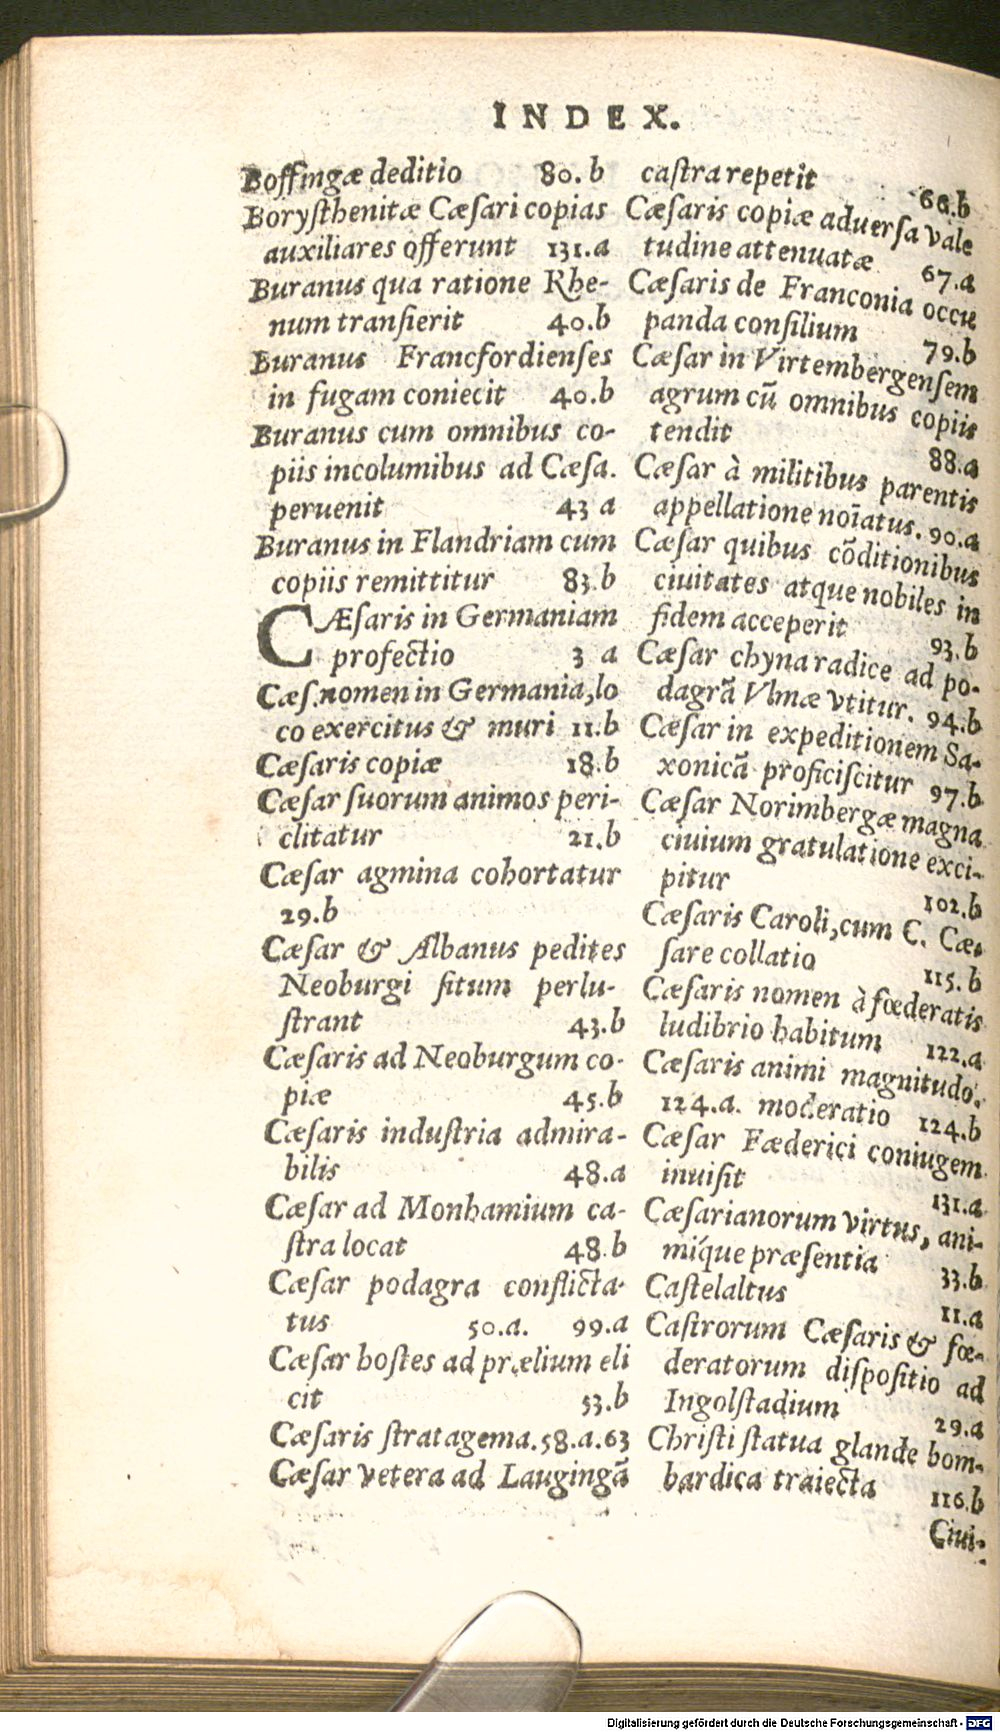 INDEX.
Boſſingæ deditio 80.b
Boryſthenitæ Cæſari copias
auxiliares offerunt 131.a
Buranus qua ratione Rhe-
num tranſierit 40.b
Buranus Francfordienſes
in fugam coniecit 40.b
Buranus cum omnibus co-
piis incolumibus ad Cæſa.
peruenit 43 a
Buranus in Flandriam cum
copiis remittitur 83.b
CÆſaris in Germaniam
profectio 3 a
Cæſ.nomen in Germania,lo
co exercitus & muri 11.b
Cæſaris copiæ 18.b
Cæſar ſuorum animos peri-
clitatur 21.b
Cæſar agmina cohortatur
29.b
Cæſar & Albanus pedites
Neoburgi ſitum perlu-
ſtrant 43.b
Cæſaris ad Neoburgum co-
piæ 45.b
Cæſaris induſtria admira-
bilis 48.a
Cæſar ad Monhamium ca-
ſtra locat 48.b
Cæſar podagra conflicta-
tus 50.a. 99.a
Cæſar hoſtes ad prælium eli
cit 53.b
Cæſaris ſtratagema.58.a.63
Cæſar vetera ad Laugingā
caſtra repetit 66.b
Cæſaris copiæ aduerſa vale
tudine attenuatæ 67.a
Cæſaris de Franconia occu
panda conſilium 79.b
Cæſar in Virtembergenſem
agrum cū omnibus copiis
tendit 88.a
Cæſar à militibus parentis
appellatione noīatus. 90.a
Cæſar quibus cōditionibus
ciuitates atque nobiles in
fidem acceperit 93.b
Cæſar chyna radice ad po-
dagrā Vlmæ vtitur. 94.b
Cæſar in expeditionem Sa-
xonicā proficiſcitur 97.b
Cæſar Norimbergæ magna
ciuium gratulatione exci-
pitur 102.b
Cæſaris Caroli,cum C. Cæ-
ſare collatio 115.b
Cæſaris nomen à fœderatis
ludibrio habitum 122.a
Cæſaris animi magnitudo.
124.a. moderatio 124.b
Cæſar Fæderici coniugem
inuiſit 131.a
Cæſarianorum virtus, ani-
míque præſentia 33.b
Caſtelaltus 11.a
Caſtrorum Cæſaris & fœ-
deratorum diſpoſitio ad
Ingolſtadium 29.a
Chriſti ſtatua glande bom-
bardica traiecta 116.b
Ciui-
Digitalisierung gefördert durch die Deutsche Forschungsgemeinschaft - DFG